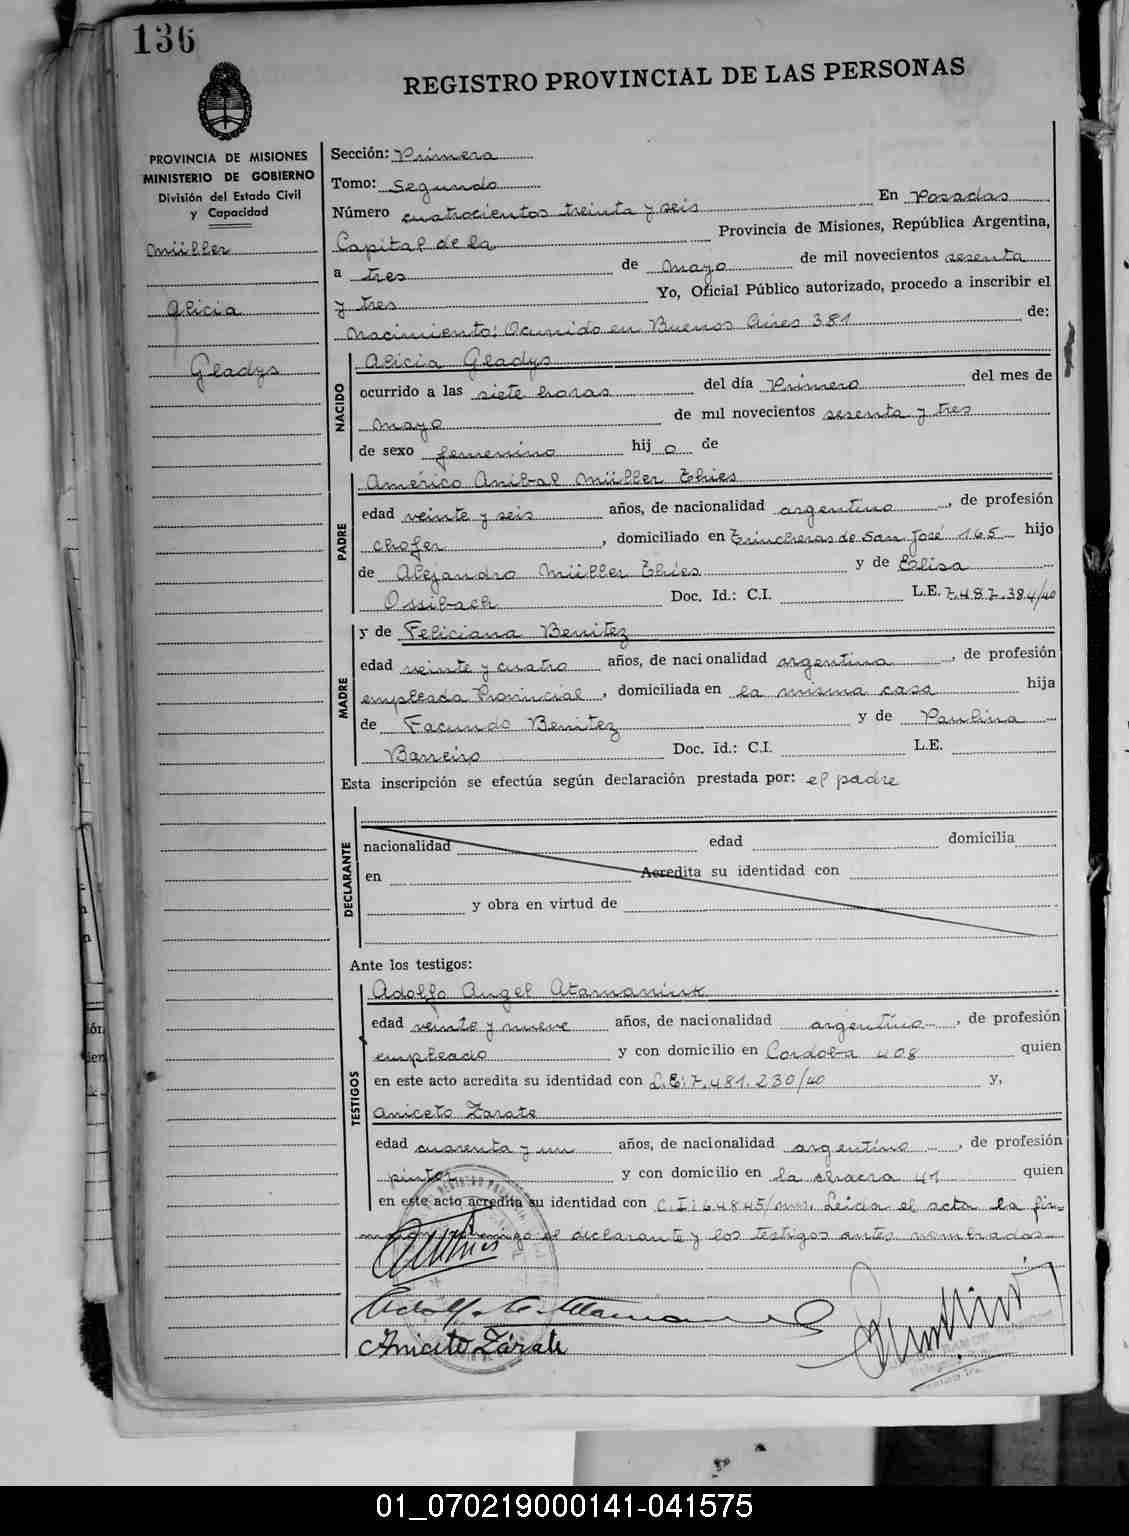 136
REGISTRO PROVINCIAL DE LAS PERSONAS
PROVINCIA DE MISIONES
MINISTERIO DE GOBIERNO
División del Estado Civil
y Capacidad
Müller
Alicia
Gladys
Sección: Primera
Tomo: Segundo
Número cuatrocientos treinta y seis En Posadas
Capital de la Provincia de Misiones, República Argentina,
a tres de mayo de mil novecientos sesenta
y tres Yo, Oficial Público autorizado, procedo a inscribir el
nacimiento: Ocurrido en Buenos Aires 381 de:
NACIDO
Alicia Gladys
ocurrido a las siete horas del día Primero del mes de
mayo de mil novecientos sesenta y tres
de sexo femenino hij o de
PADRE
Américo Anibal Müller Thies
edad veinte y seis años, de nacionalidad argentino, de profesión
chofer, domiciliado en Trincheras de San José 165 hijo
de Alejandro Müller Thies y de Elisa
Ossibach Doc. Id.: C.I. L.E. 7.487.384/40
MADRE
y de Feliciana Benitez
edad veinte y cuatro años, de nacionalidad argentina, de profesión
empleada Provincial, domiciliada en la misma casa hija
de Facundo Benitez y de Paulina
Barreiro Doc. Id.: C.I. L.E.
Esta inscripción se efectúa según declaración prestada por: el padre
DECLARANTE
nacionalidad edad domicilia
en Acredita su identidad con
y obra en virtud de
Ante los testigos:
TESTIGOS
Adolfo Angel Atamaniuk
edad veinte y nueve años, de nacionalidad argentino, de profesión
empleado y con domicilio en Cordoba 408 quien
en este acto acredita su identidad con L.E: 7.481.230/40 y,
Aniceto Zarate
edad cuarenta y un años, de nacionalidad argentino, de profesión
pintor y con domicilio en la chacra 41 quien
en este acto acredita su identidad con C.I: 64845/mnes. Leida el acta la fir-
man conmigo el declarante y los testigos antes nombrados
Aniceto Zárate
01_070219000141-041575